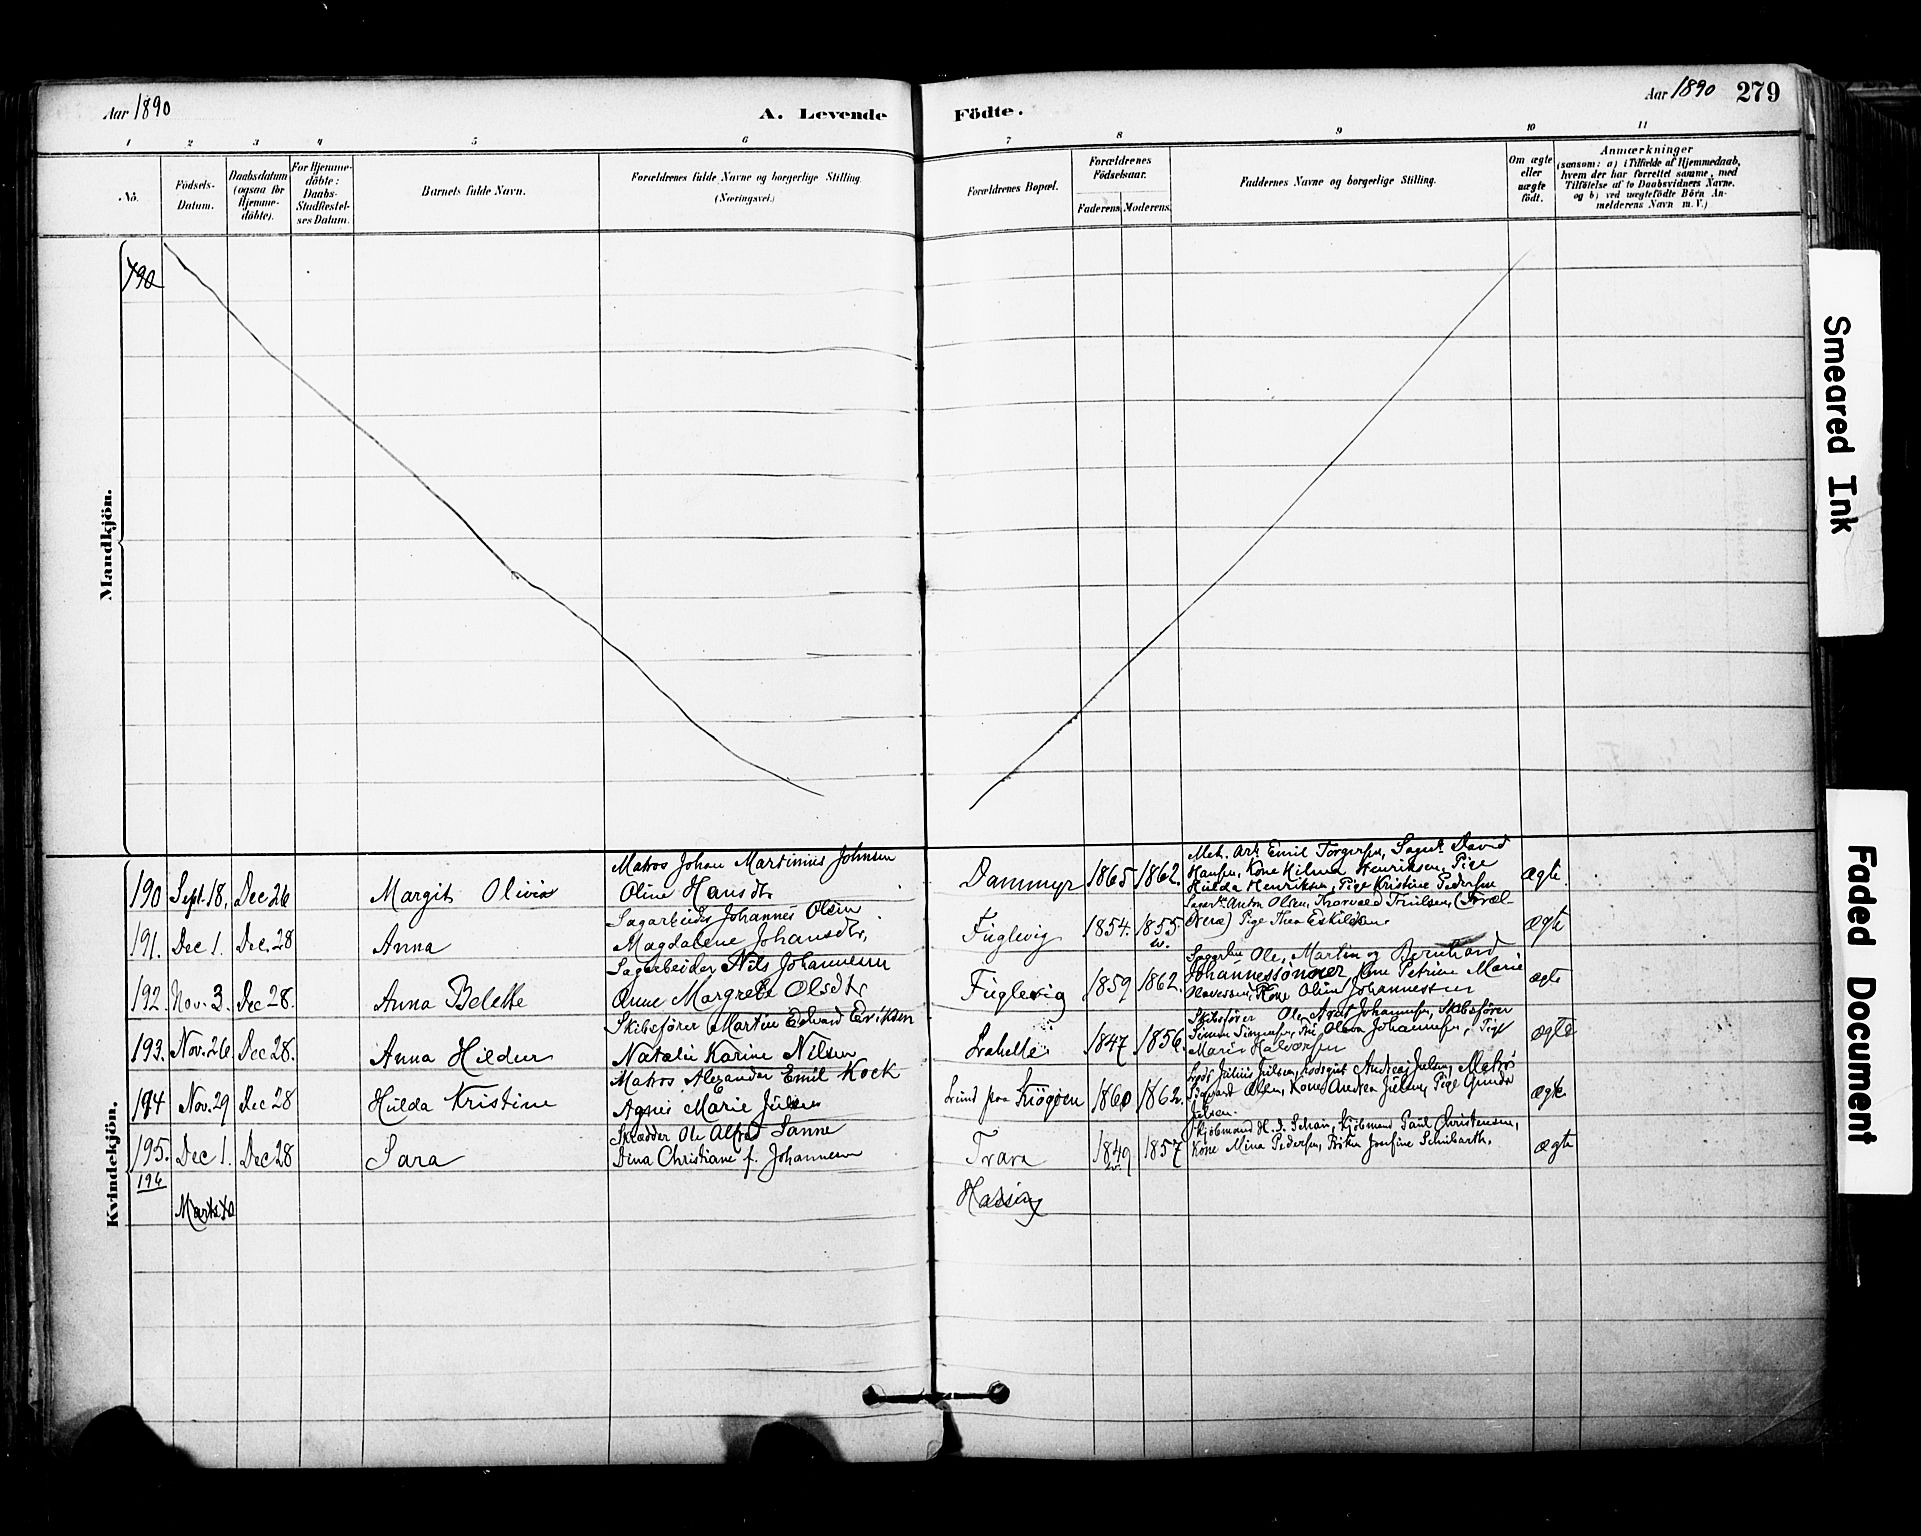 Aar 1890
A. Levende
Födte.
Aar 1890 279
1 2 3 4 5 6 7 8 9 10 11
No.
Födsels-
Datum.
Daabsdatum
(ogsaa for
Hjemme-
döbte).
For Hjemme-
döbte:
Daabs-
Stadfæstel-
ses Datum.
Barnets fulde Navn.
Forældrenes fulde Navne og borgerlige Stilling.
(Næringsvei.)
Forældrenes Bopæl.
Forældrenes
Födselsaar.
Faderens. Moderens.
Faddernes Navne og borgerlige Stilling.
Om ægte
eller
uægte
födt.
Anmærkninger
(saasom: a) i Tilfælde af Hjemmedaab,
hvem der har forrettet samme, med
Tilföielse af to Daabsvidners Navne,
og b) ved uægtefödte Börn An-
melderens Navn m. V.)
Mandkjön.
190
Kvindekjön.
190 Sept. 18. Dec 26 Margit Olivia
Matros Johan Martinius Johnsen
Oline Hansdtr
Dammyr 1865 1862.
Emil Torgersen, David
Hansen, Kone Hilma Henriksen, Pige
Hulda Henriksen, Pige Kristine Pedersen
ægte.
191. Dec 1. Dec. 28 Anna
Sagarbeider Johannes Olsen
Magdalene Johansdtr,
Fuglevig 1854. 1855.
Anton Olsen, Thorvald
Pige Thea Eskildsen
ægte
192. Nov. 3. Dec 28. Anna Belette
Sagarbeider Nils Johannesen
Anne Margrete Olsdtr
Fuglevig 1859 1862.
Ole, Martin og Bernhard
Johannessönner, Kone Petrine Marie
Kone Oline Johannessen
ægte
193. Nov. 26 Dec 28. Anna Hildur
Skibsförer Martin Edvard Eriksen
Natalie Karine Nilsen
Labelle 1847 1856.
Skibsförer Ole Johannesen, Skibsförer
Johannesen, Pige
Marie Halvorsen
ægte
194 Nov. 29 Dec 28 Hulda Kristine
Matros Alexander Emil Kock
Agnes Marie Julsen
Lund paa Kiögöen 1860 1862.
Lods Julius Julsen, Andreas Julsen, Matros
Sigvard Olsen, Kone Andrea Julsen, Pige Gunda
Julsen.
ægte.
195. Dec 1. Dec 28 Sara
Skrædder Ole Alfred Sanne
Dina Christiane f. Johannesen
Trara 1849 1857
Kjöbmand H. J. Kjöbmand Paul Christensen,
Kone Mina Pedersen, Josefine Schibarth.
ægte
196
Marts
Smeared Ink
Faded Document